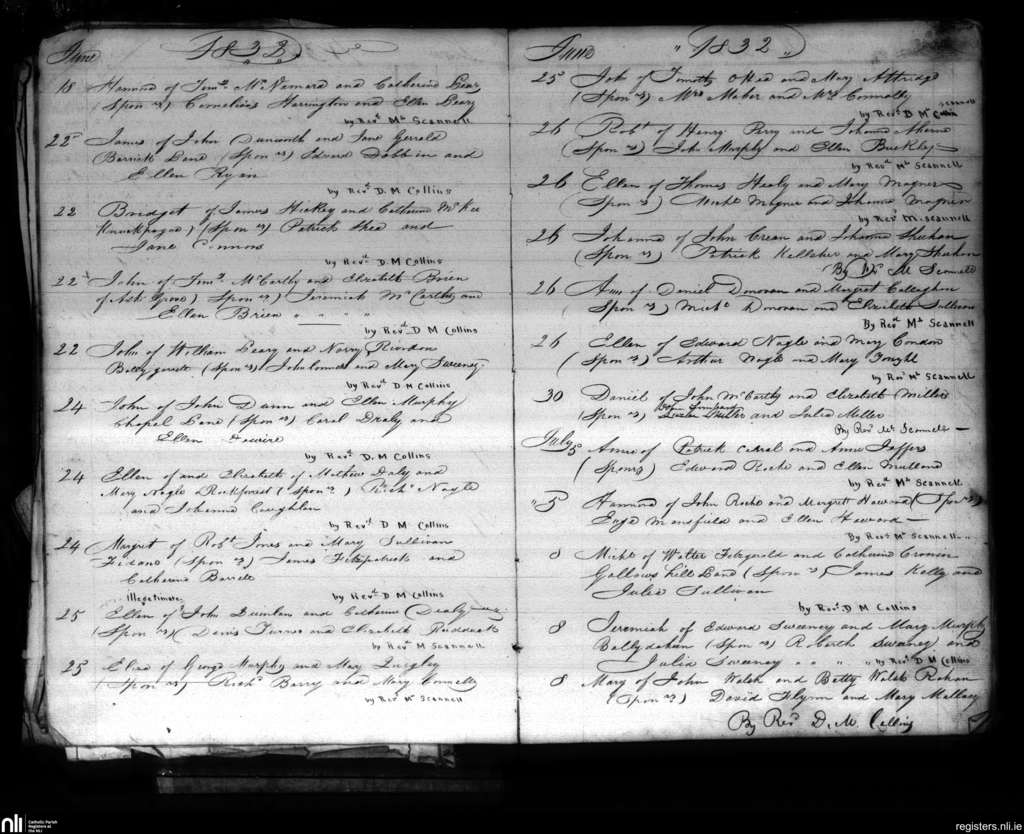 June 1832
18 Hannora of Timy McNamara and Catherine Leary
(Spon rs) Cornelius Harrington and Ellen Leary
by Revd Mr Scannell
22 James of John Dunworth and Jane Gerrold
Barrick Lane (Spon rs) Edward Dobbin and
Ellen Ryan
by Revd D. M Collins
22 Bridget of James Hickey and Catherine McKee
(Spon rs) Patrick Shea and
Jane Connors
by Revd D. M Collins
22 John of Timy McCarthy and Elizabeth Brien
of Ash Grove) Spon rs) Jeremiah McCarthy and
Ellen Brien " " " "
by Revd D M Collins
22 John of William Leary and Norry Riordon
(Spon rs) John Connor and Mary Sweeney
by Revd D. M Collins
24 John of John Dunn and Ellen Murphy
Chapel Lane (Spon rs) Carol Dealy and
Ellen
by Revd D. M Collins
24 Ellen of and Elizabeth of Mathew Daly and
Mary Nagle Rockforest (Spon rs) Richd Nagle
and Johanna Coughlan
by Revd D M Collins
24 Margret of Robt Jones and Mary Sullivan
(Spon rs) James Fitzpatrick and
Catherine Barrett
by Revd D M Collins
illegetimate
25 Ellen of John Quinlan and Catherine Dealy
(Spon rs) Denis Turner and Elizabeth Ruddock
by Revd M Scannell
25 Eliza of George Murphy and Mary Quigley
(Spon rs) Richd Barry and Mary Connell
by Revd Mr Scannell
June " 1832 "
25 Joh of Timothy OKeefe and Mary Attridge
(Spon rs) Mrs Maher and Mrs Connolly
scannell
by Revd D Mr Collin
26 Robt of Henry Perry and Johanna Aherne
(Spon rs) John Murphy and Ellen Buckley
by Revd Mr Scannell
26 Ellen of Thomas Healy and Mary Magner
(Spon rs) Michl Magner and Johanna Magner
by Revd M. Scannell
26 Johanna of John Crean and Johanna Sheehan
(Spon rs) Patrick Kelleher and Mary Sheehan
By Mr Scannell
26 Ann of Daniel Donovan and Margret Callaghan
(Spon rs) Michl Donovan and Elizabeth Sullivan
By Revd Mr Scannell
26 Ellen of Edward Nagle and Mary Condon
(Spon rs) Arthur Nagle and Mary
by Revd Mr Scannell
30 Daniel of John McCarthy and Elizabeth Miller
(Spon rs) and Julia Miller
By Revd Mr Scannell
July 5 Anne of Patrick Cahal and Anne Jaffers
(Spon rs) Edward Roche and Ellen Mulland
by Revd Mr Scannell
" 5 Hannora of John Roche and Margret Howard (Spon rs)
Mansfield and Ellen Howard
By Revd Mr Scannell "
8 Michl of Walter Fitzgerald and Catherine Cronin
Gallows hill Land (Spon rs) James Kelly and
Julia Sullivan
by Revd D M Collins
8 Jeremiah of Edward Sweeney and Mary Murphy
Ballydahan (Spon rs) Sweeney and
Julia Sweeney " " " " by Revd D M Collins
8 Mary of John Welsh and Betty Welsh Rohan
(Spon rs) David Flynn and Mary Mallay
By Revd D. M. Collins
nli Catholic Parish Registers at the NLI
registers.nli.ie